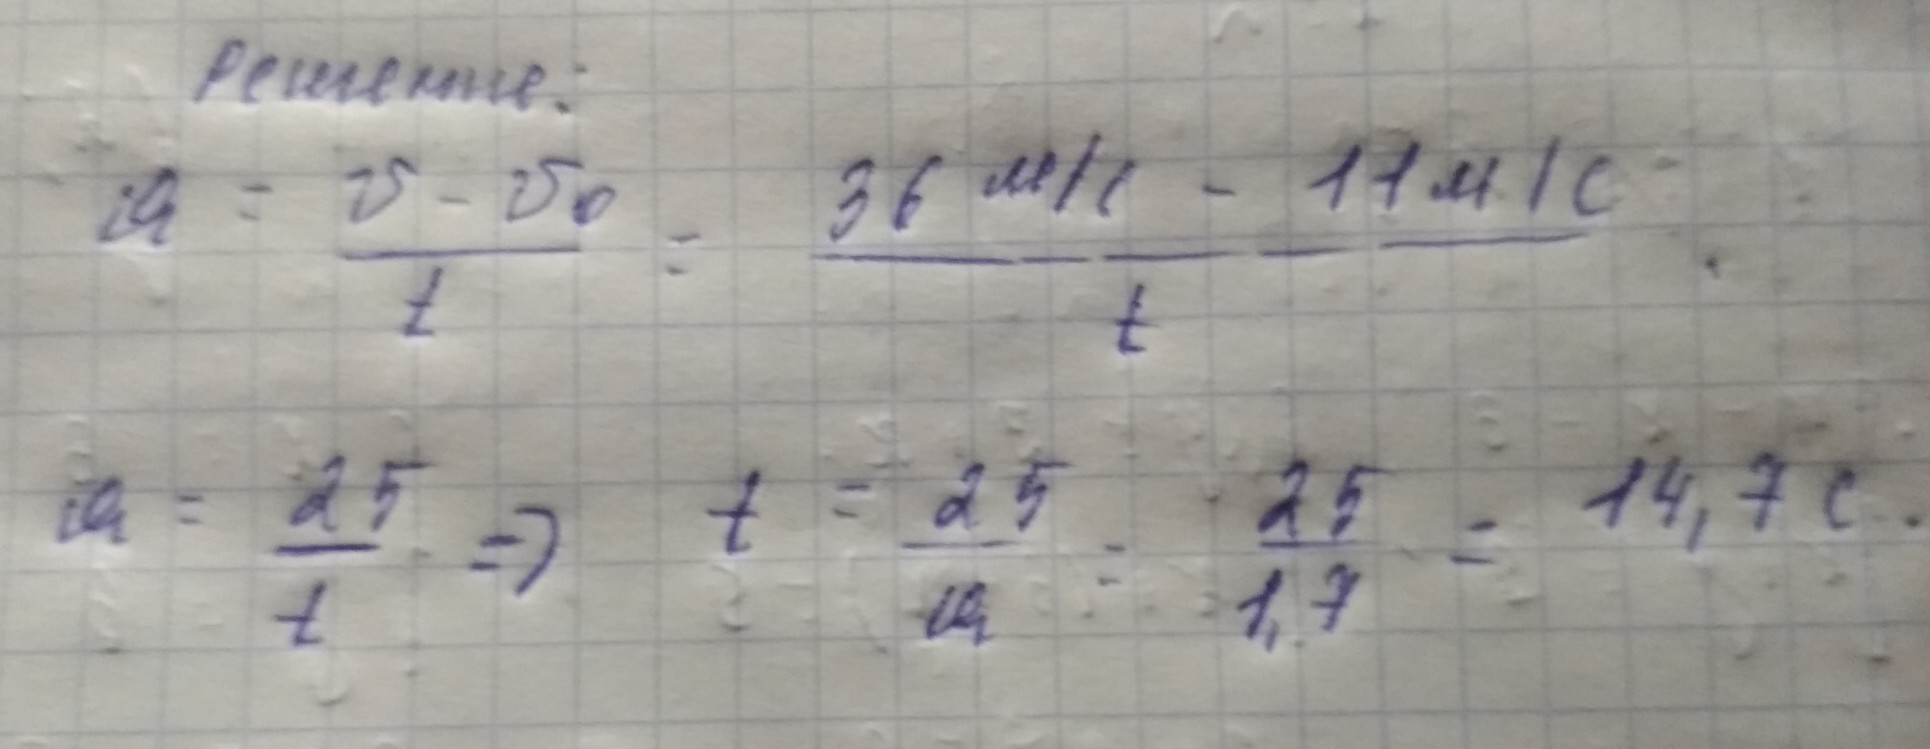 Решение:
a = v - v₀ / t = 36 м/с - 11 м/с / t
a = 25 / t => t = 25 / a = 25 / 1,7 = 14,7 с.